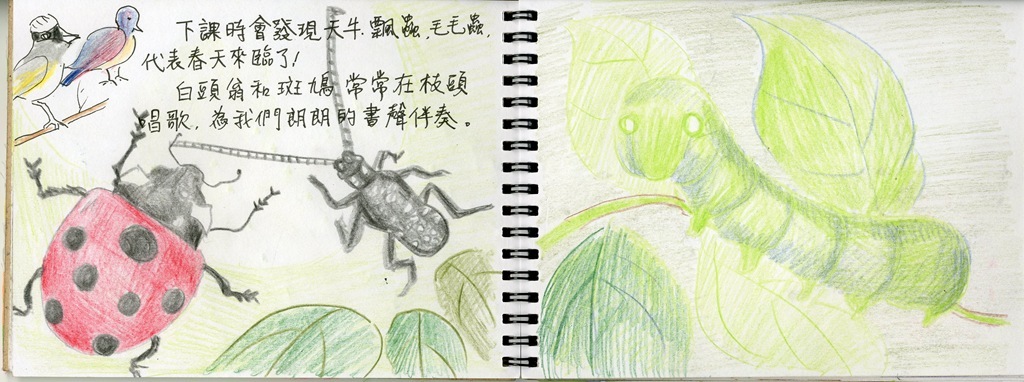 下課時會發現天牛.飄蟲,毛毛蟲,
代表春天來臨了!
白頭翁和斑鳩常常在枝頭
唱歌,為我們朗朗的書聲伴奏。